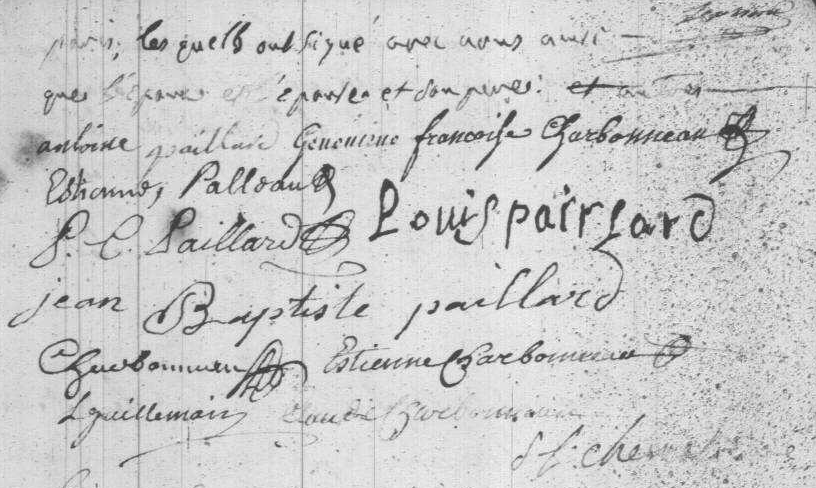 paris, lesquels ont signé avec nous ainsi
que l'epoux et l'epouse et son pere. et
antoine paillard Genevieve francoise Charbonneau
Estienne Palleau
P. C. Paillard Louis pairlard
jean Baptiste paillard
Charbonneau Estienne Charbonneau
Lguillemain Claude Charbonneau